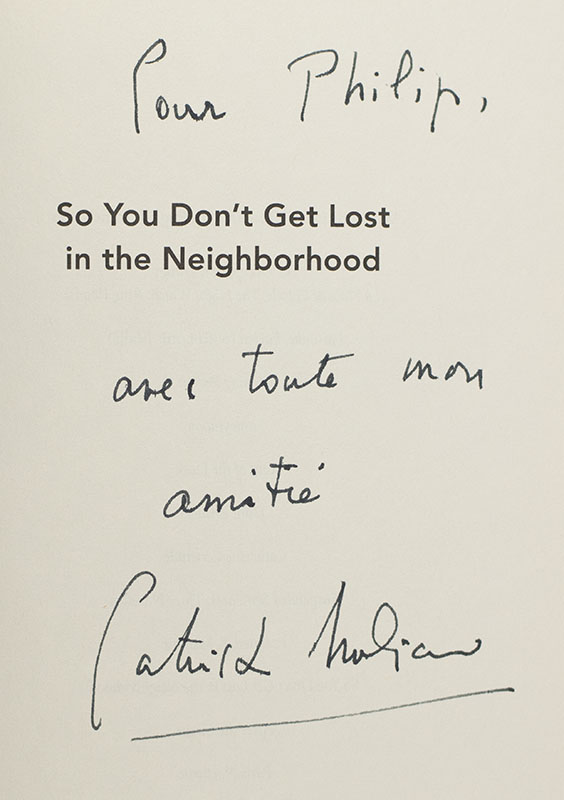 Pour Philip,
So You Don't Get Lost
in the Neighborhood
avec toute mon
amitié
Patrick Modiano